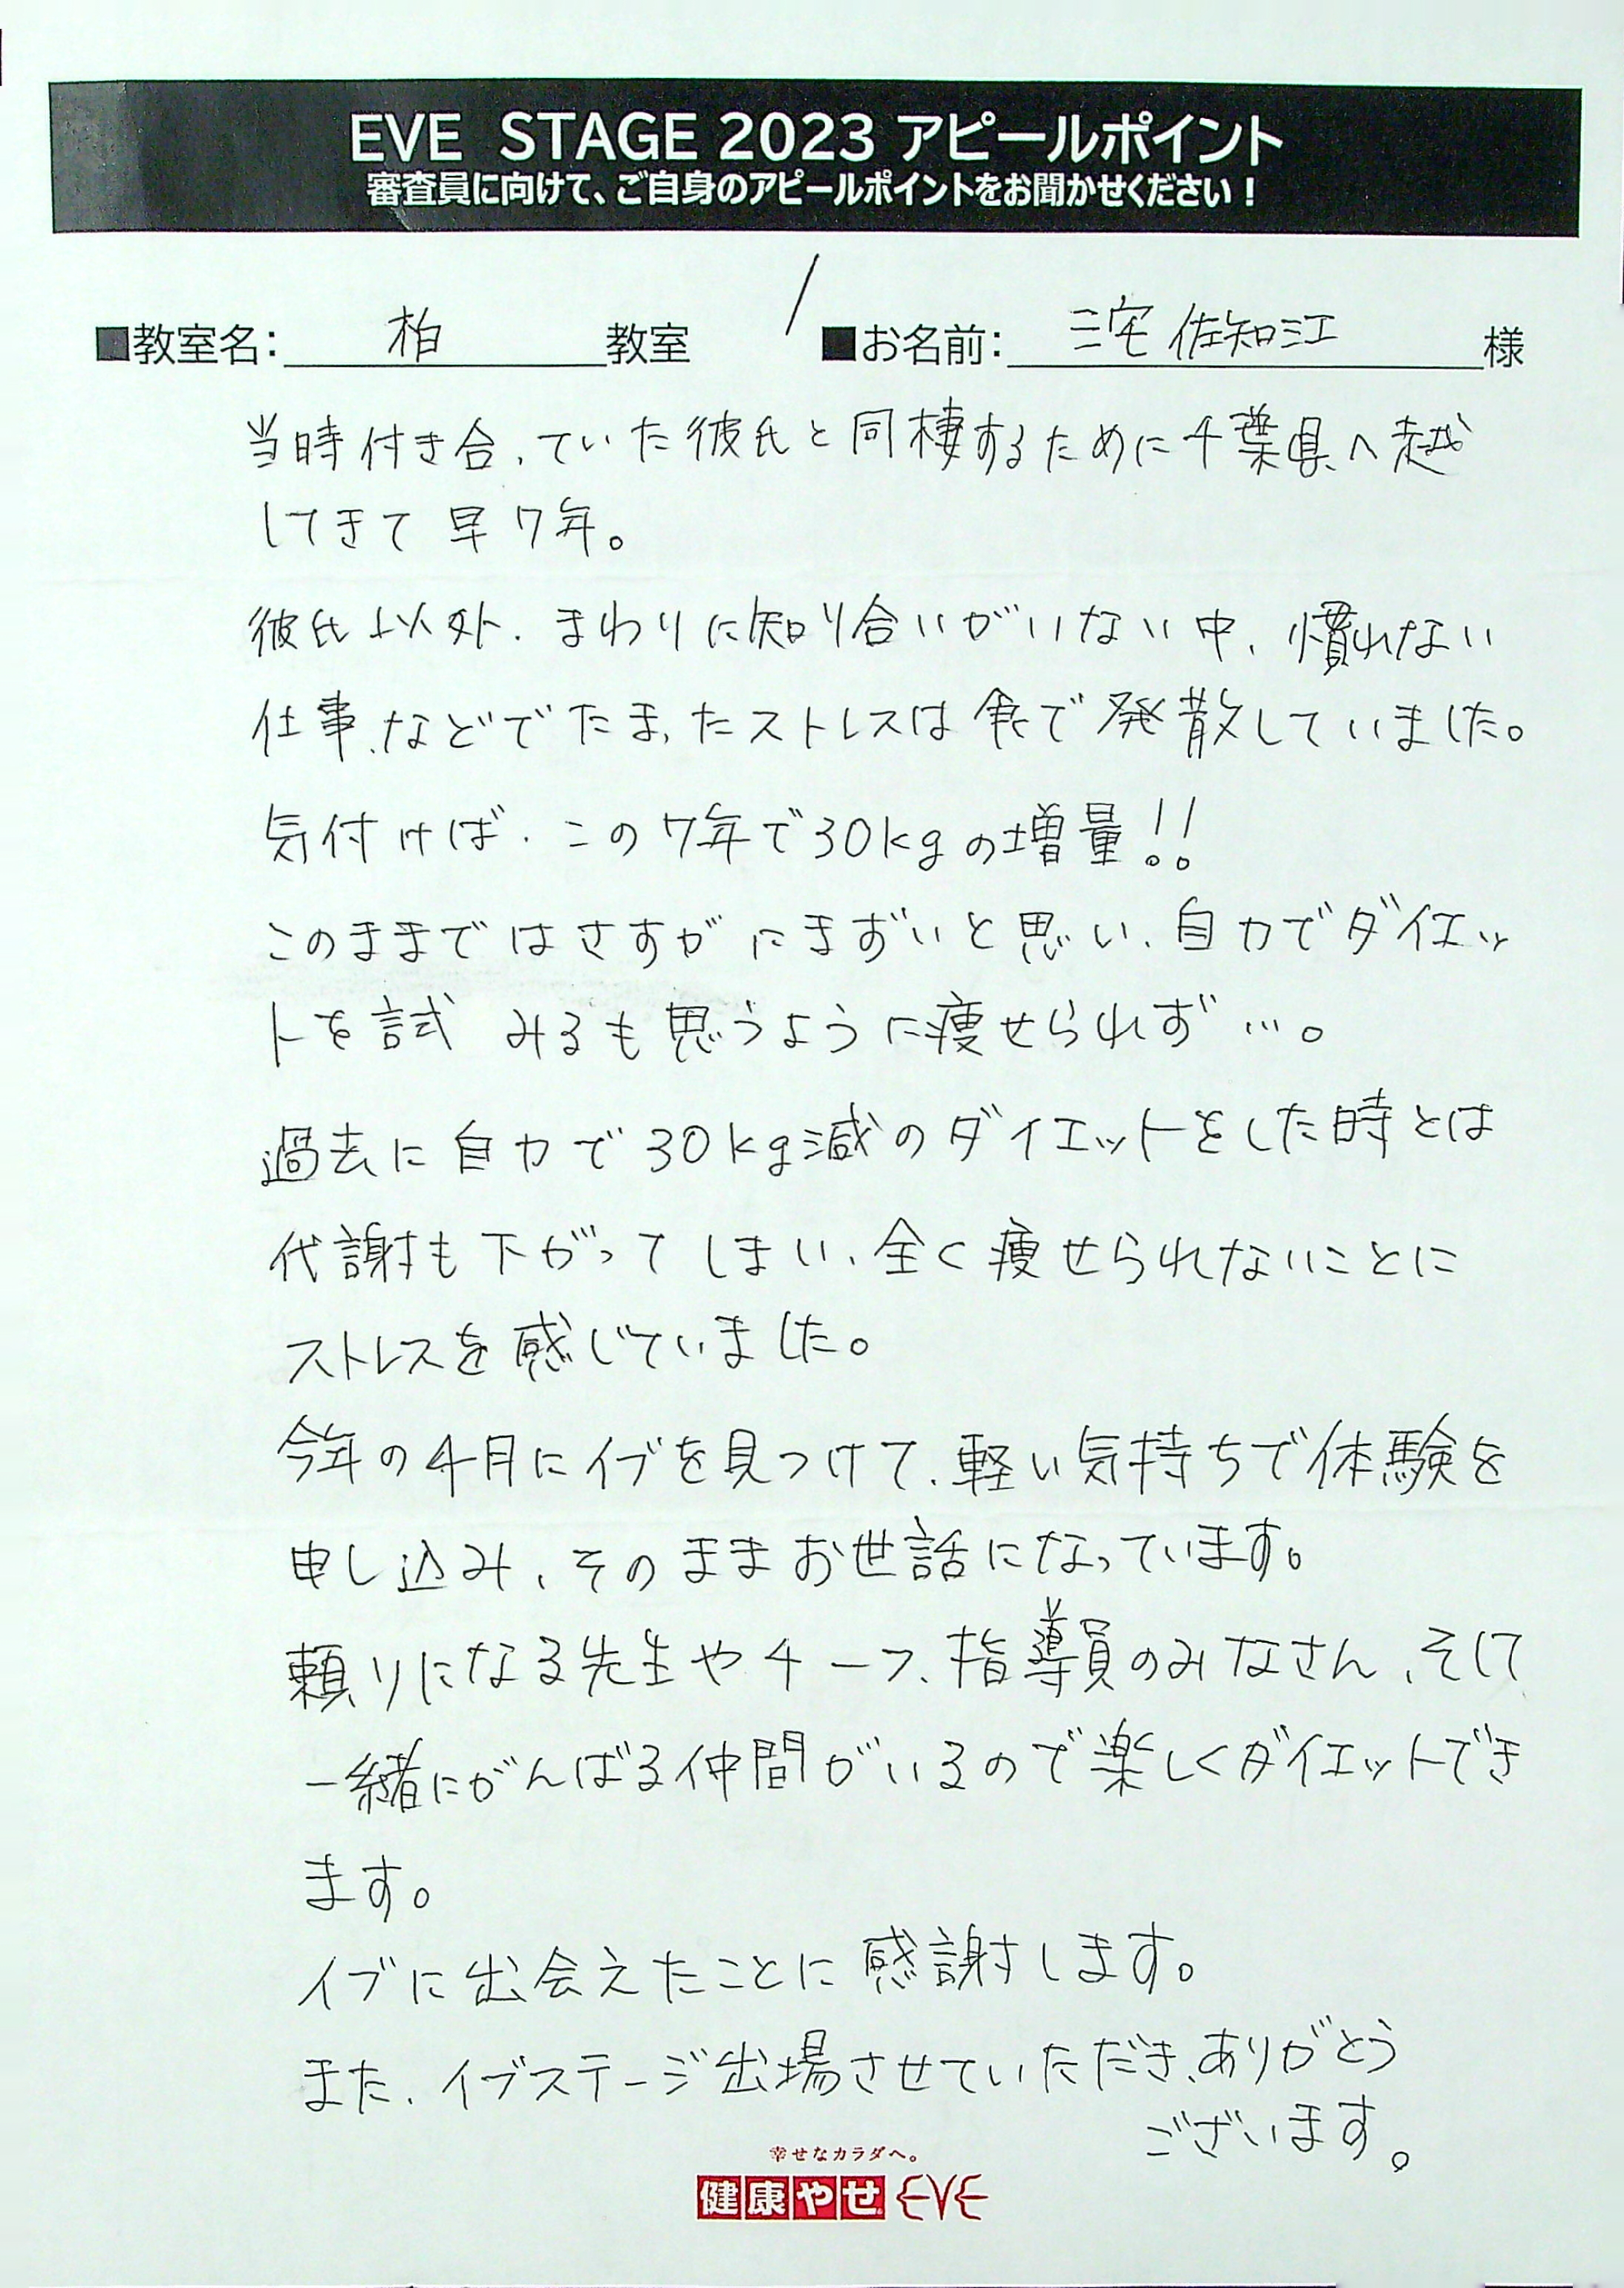 EVE STAGE 2023 アピールポイント
審査員に向けて、ご自身のアピールポイントをお聞かせください！
■教室名：柏教室 ■お名前：三宅 佐知江様
当時付き合っていた彼氏と同棲するために千葉県へ越
してきて早7年。
彼氏以外、まわりに知り合いがいない中、慣れない
仕事、などでたまったストレスは食で発散していました。
気付けば、この7年で30kgの増量!!
このままではさすがにまずいと思い、自力でダイエッ
トを試みるも思うように痩せられず…。
過去に自力で30kg減のダイエットをした時とは
代謝も下がってしまい、全く痩せられないことに
ストレスを感じていました。
今年の4月にイブを見つけて、軽い気持ちで体験を
申し込み、そのままお世話になっています。
頼りになる先生やチーフ、指導員のみなさん、そして
一緒にがんばる仲間がいるので楽しくダイエットでき
ます。
イブに出会えたことに感謝します。
また、イブステージ出場させていただき、ありがとう
ございます。
幸せなカラダへ。
健康やせ EVE